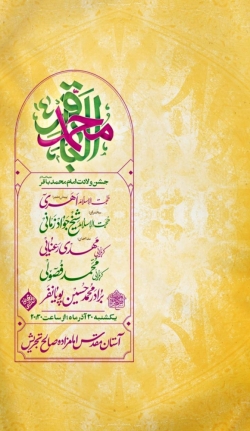 محمد الباقر
جشن ولادت امام محمد باقر
حجت الاسلام احمدی
حجت الاسلام شیخ جواد زمانی
کربلایی مهدی رعنایی
کربلایی محمد فصولی
برادر محمد حسین پویانفر
یکشنبه ۲۰ آذر ماه | از ساعت ۲۰:۳۰
آستان مقدس امامزاده صالح تجریش